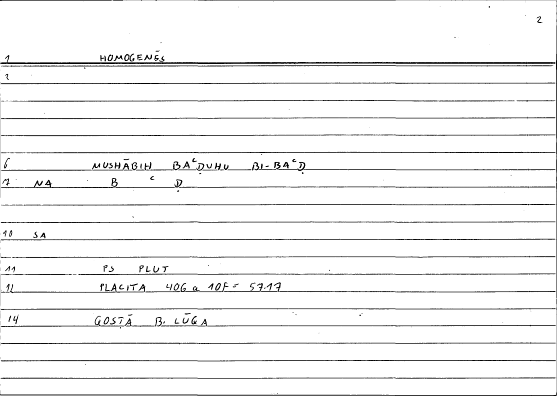 2
1 HOMOGENĒS
2
6 MUSHĀBIH BAᶜḌUHU BI-BAᶜḌ
7 NA B ᶜ Ḍ
10 SA
11 PS PLUT
12 PLACITA 406 a 10F = 5717
14 GOSṬĀ B. LŪGA